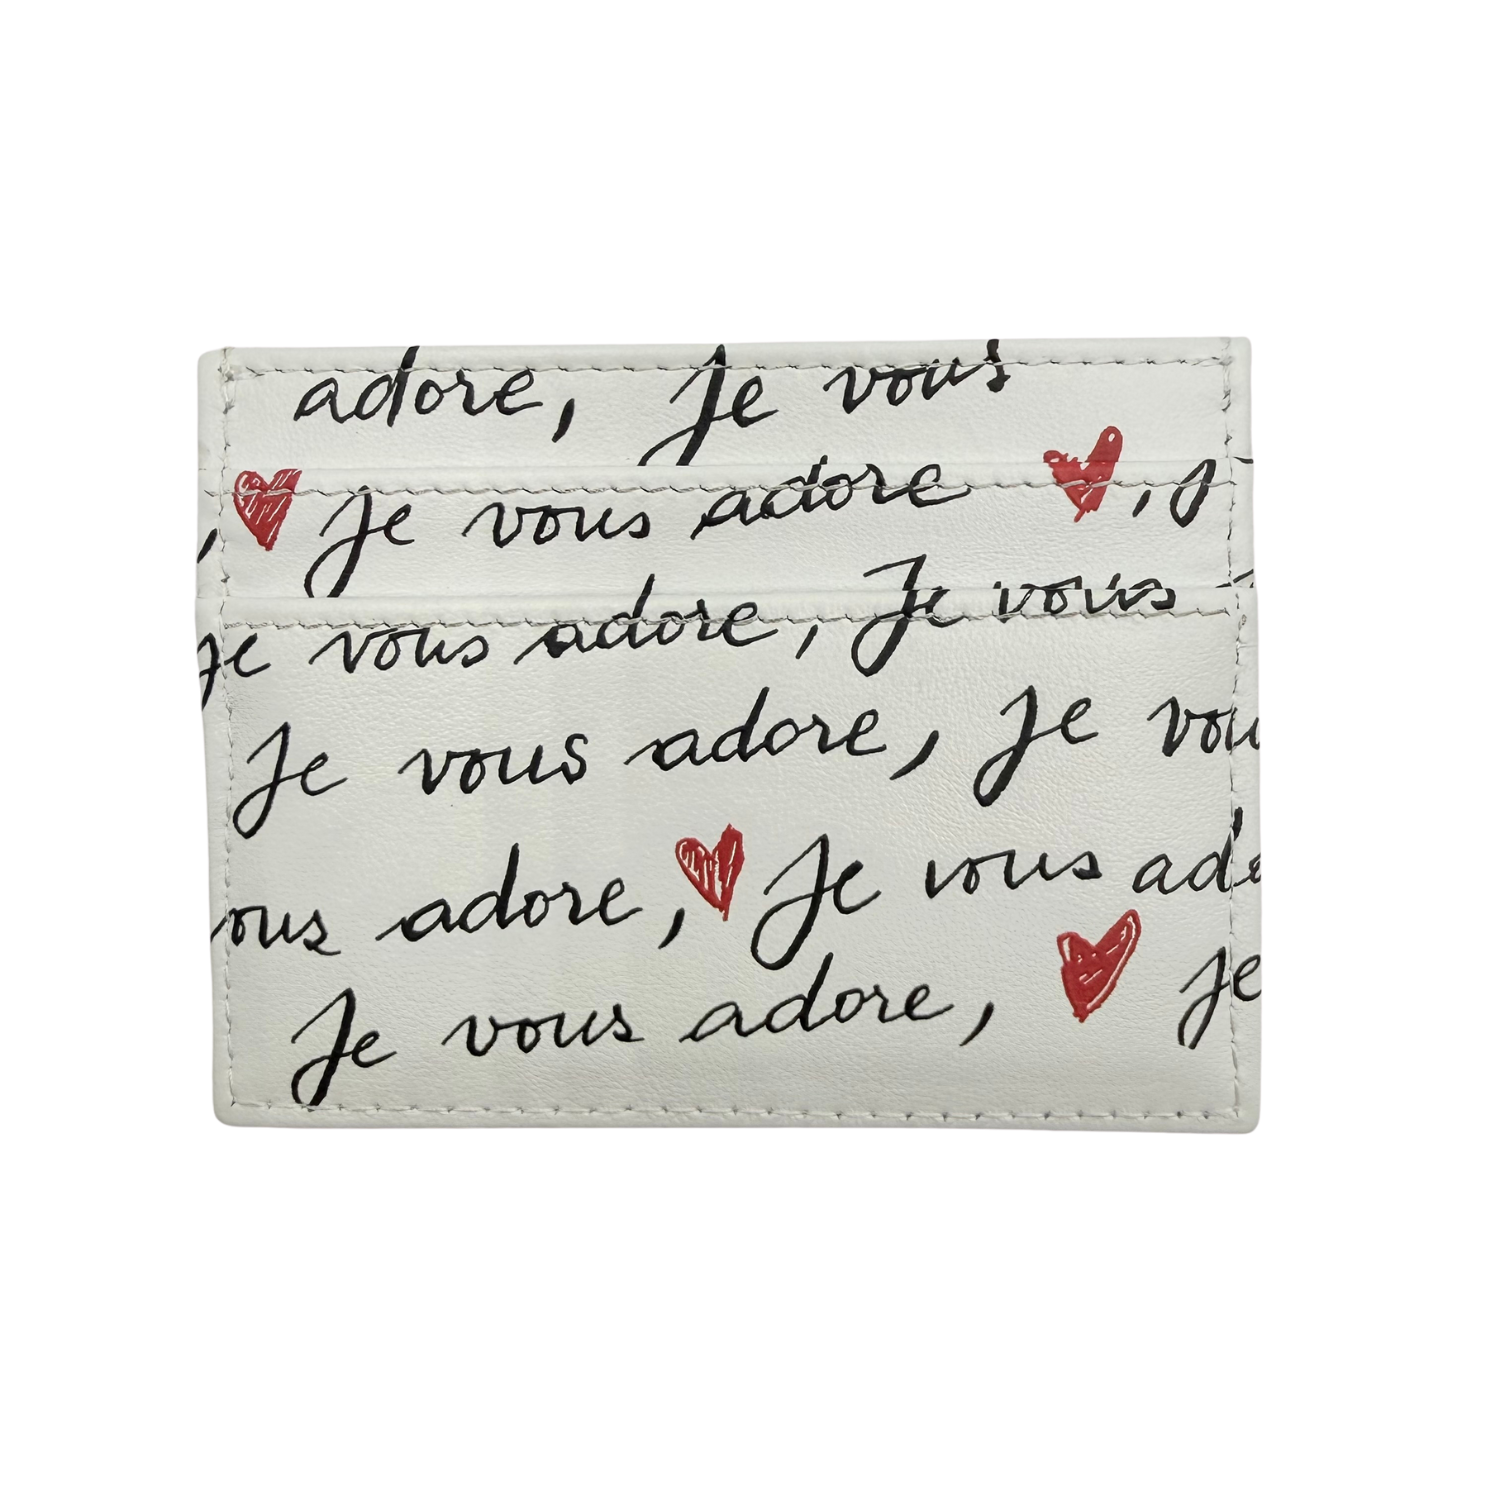 adore, Je vous
, Je vous adore , J
Je vous adore, Je vous
Je vous adore, Je vou
ous adore, Je vous ado
Je vous adore, Je